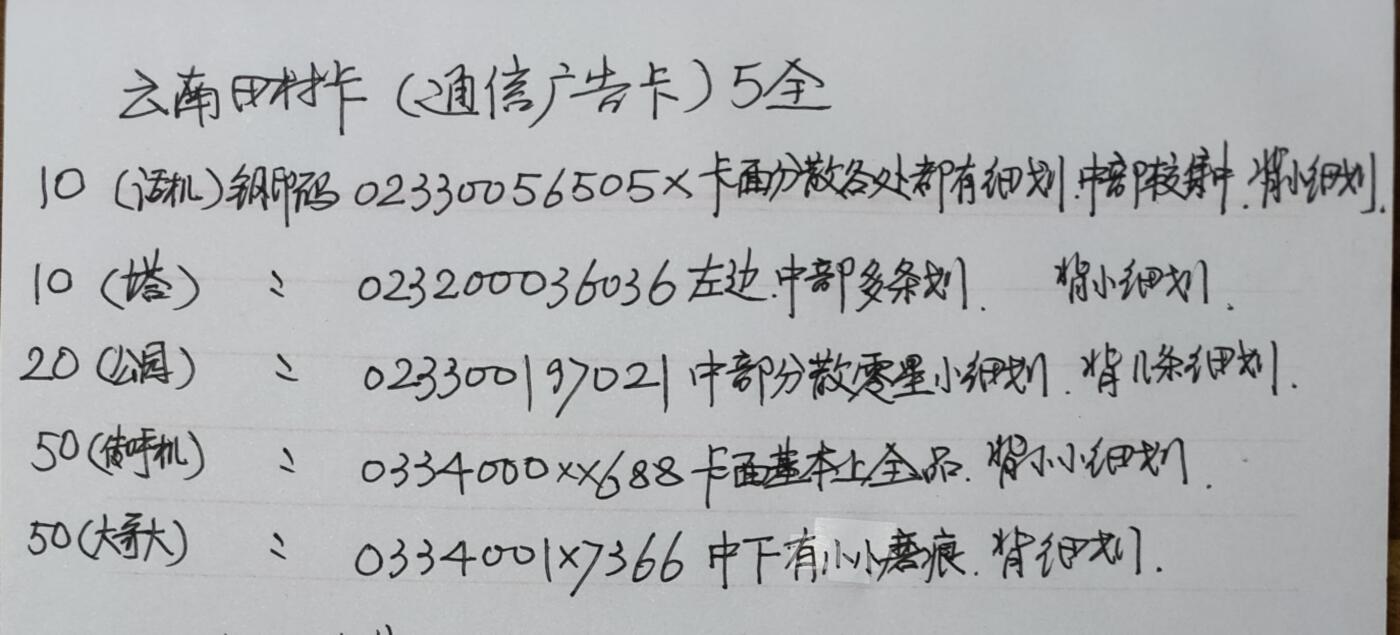 云南田村卡（通信广告卡）5全
10（话机）钢印码 02330056505× 卡面分散各处都有细划.中部较集中.背小细划.
10（塔） 〃 023200036036 左边.中部多条划. 背小细划.
20（公园） 〃 023300197021 中部分散零星小细划.背几条细划.
50（传呼机） 〃 0334000××688 卡面基本上全品.背小小细划.
50（大哥大） 〃 0334001×7366 中下有小小磨痕.背细划.